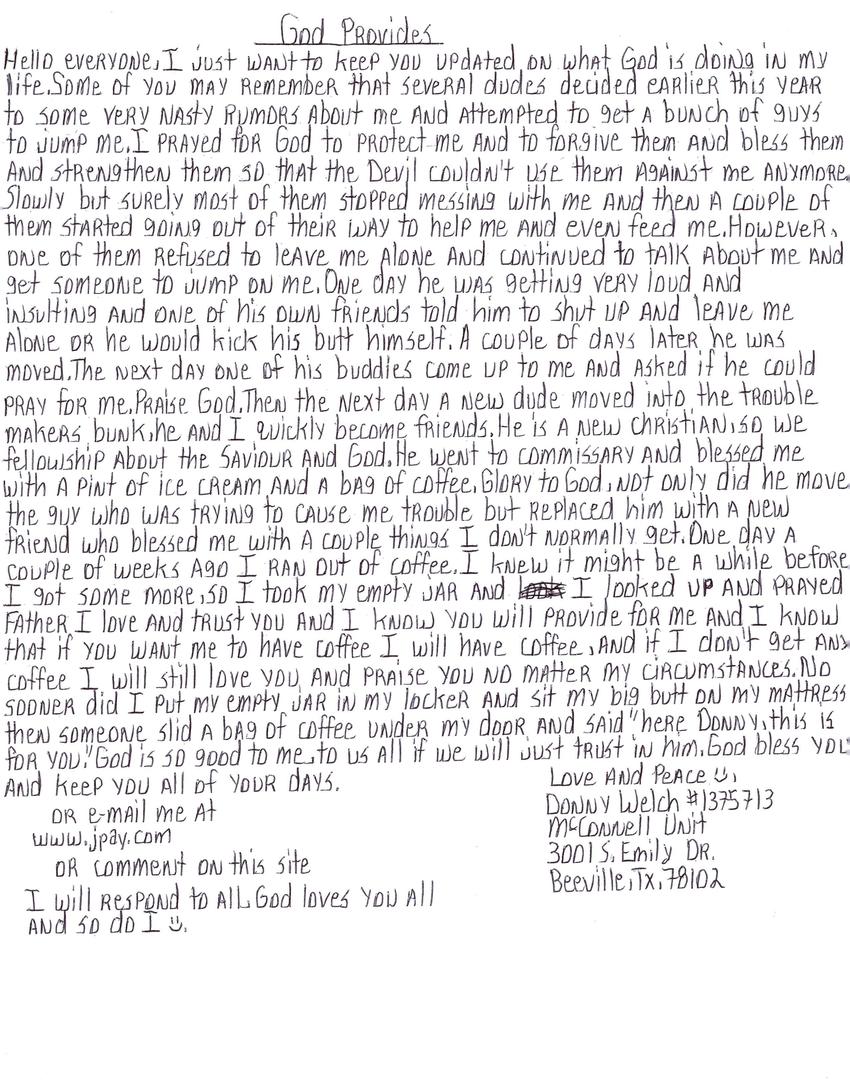 God Provides
Hello everyone, I just want to keep you updated on what God is doing in my
life. Some of you may remember that several dudes decided earlier this year
to some very nasty rumors about me and attempted to get a bunch of guys
to jump me. I prayed for God to protect me and to forgive them and bless them
and strengthen them so that the Devil couldn't use them against me anymore.
Slowly but surely most of them stopped messing with me and then a couple of
them started going out of their way to help me and even feed me. However,
one of them refused to leave me alone and continued to talk about me and
get someone to jump on me. One day he was getting very loud and
insulting and one of his own friends told him to shut up and leave me
alone or he would kick his butt himself. A couple of days later he was
moved. The next day one of his buddies come up to me and asked if he could
pray for me. Praise God. Then the next day a new dude moved into the trouble
makers bunk, he and I quickly become friends. He is a new christian, so we
fellowship about the Saviour and God. He went to commissary and blessed me
with a pint of ice cream and a bag of coffee. Glory to God, not only did he move
the guy who was trying to cause me trouble but replaced him with a new
friend who blessed me with a couple things I don't normally get. One day a
couple of weeks ago I ran out of coffee. I knew it might be a while before
I got some more, so I took my empty jar and I looked up and prayed
Father I love and trust you and I know you will provide for me and I know
that if you want me to have coffee I will have coffee, and if I don't get any
coffee I will still love you and praise you no matter my circumstances. No
sooner did I put my empty jar in my locker and sit my big butt on my mattress
then someone slid a bag of coffee under my door and said "here Donny, this is
for you." God is so good to me, to us all if we will just trust in him. God bless you
and keep you all of your days.
or e-mail me at
www.jpay.com
or comment on this site
I will respond to all. God loves you all
and so do I ☺.
Love and Peace ☺,
Donny Welch #1375713
McConnell Unit
3001 S. Emily Dr.
Beeville, Tx, 78102